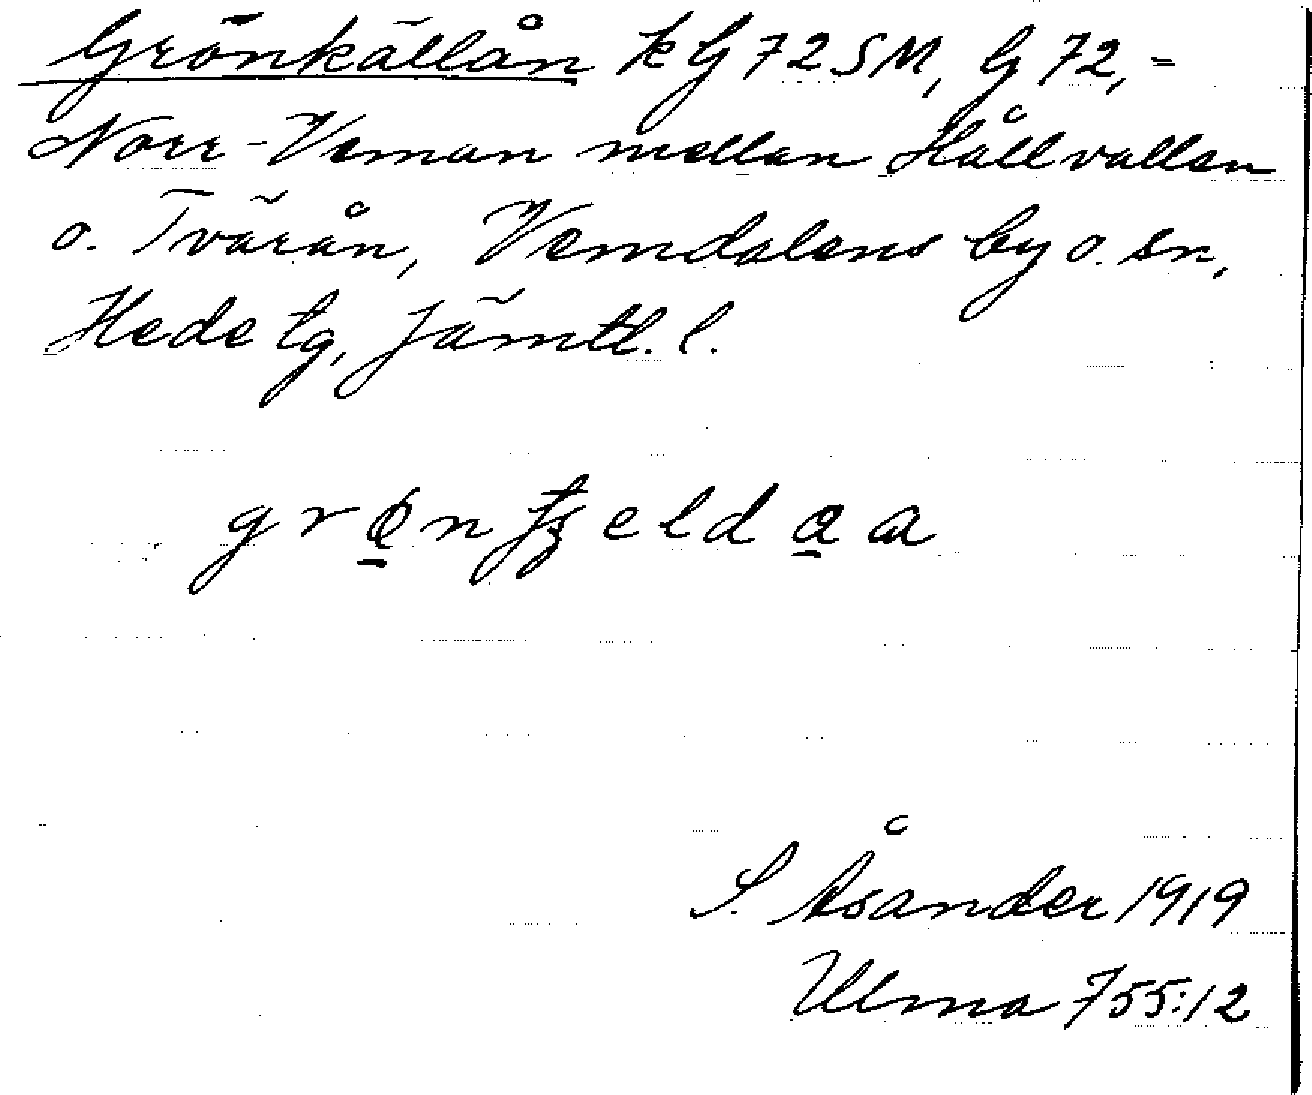 Grönkällån k G 72 SM, G 72,-
Norr-Veman mellan Hållvallen
o. Tvärån, Vemdalens by o. sn,
Hede tg, Jämtl. l.
S. Åsander 1919
Ulma 755:12